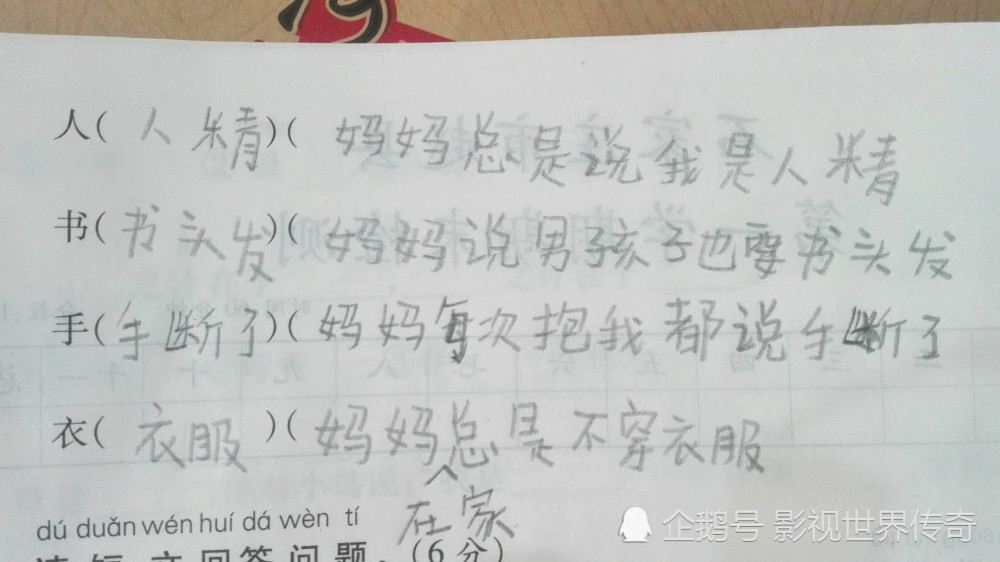 人(人精)(妈妈总是说我是人精
书(书头发)(妈妈说男孩子也要书头发
手(手断了)(妈妈每次抱我都说手断了
衣(衣服)(妈妈总是不穿衣服
在家
dú duǎn wén huí dá wèn tí
读短文回答问题。(6分)
企鹅号 影视世界传奇